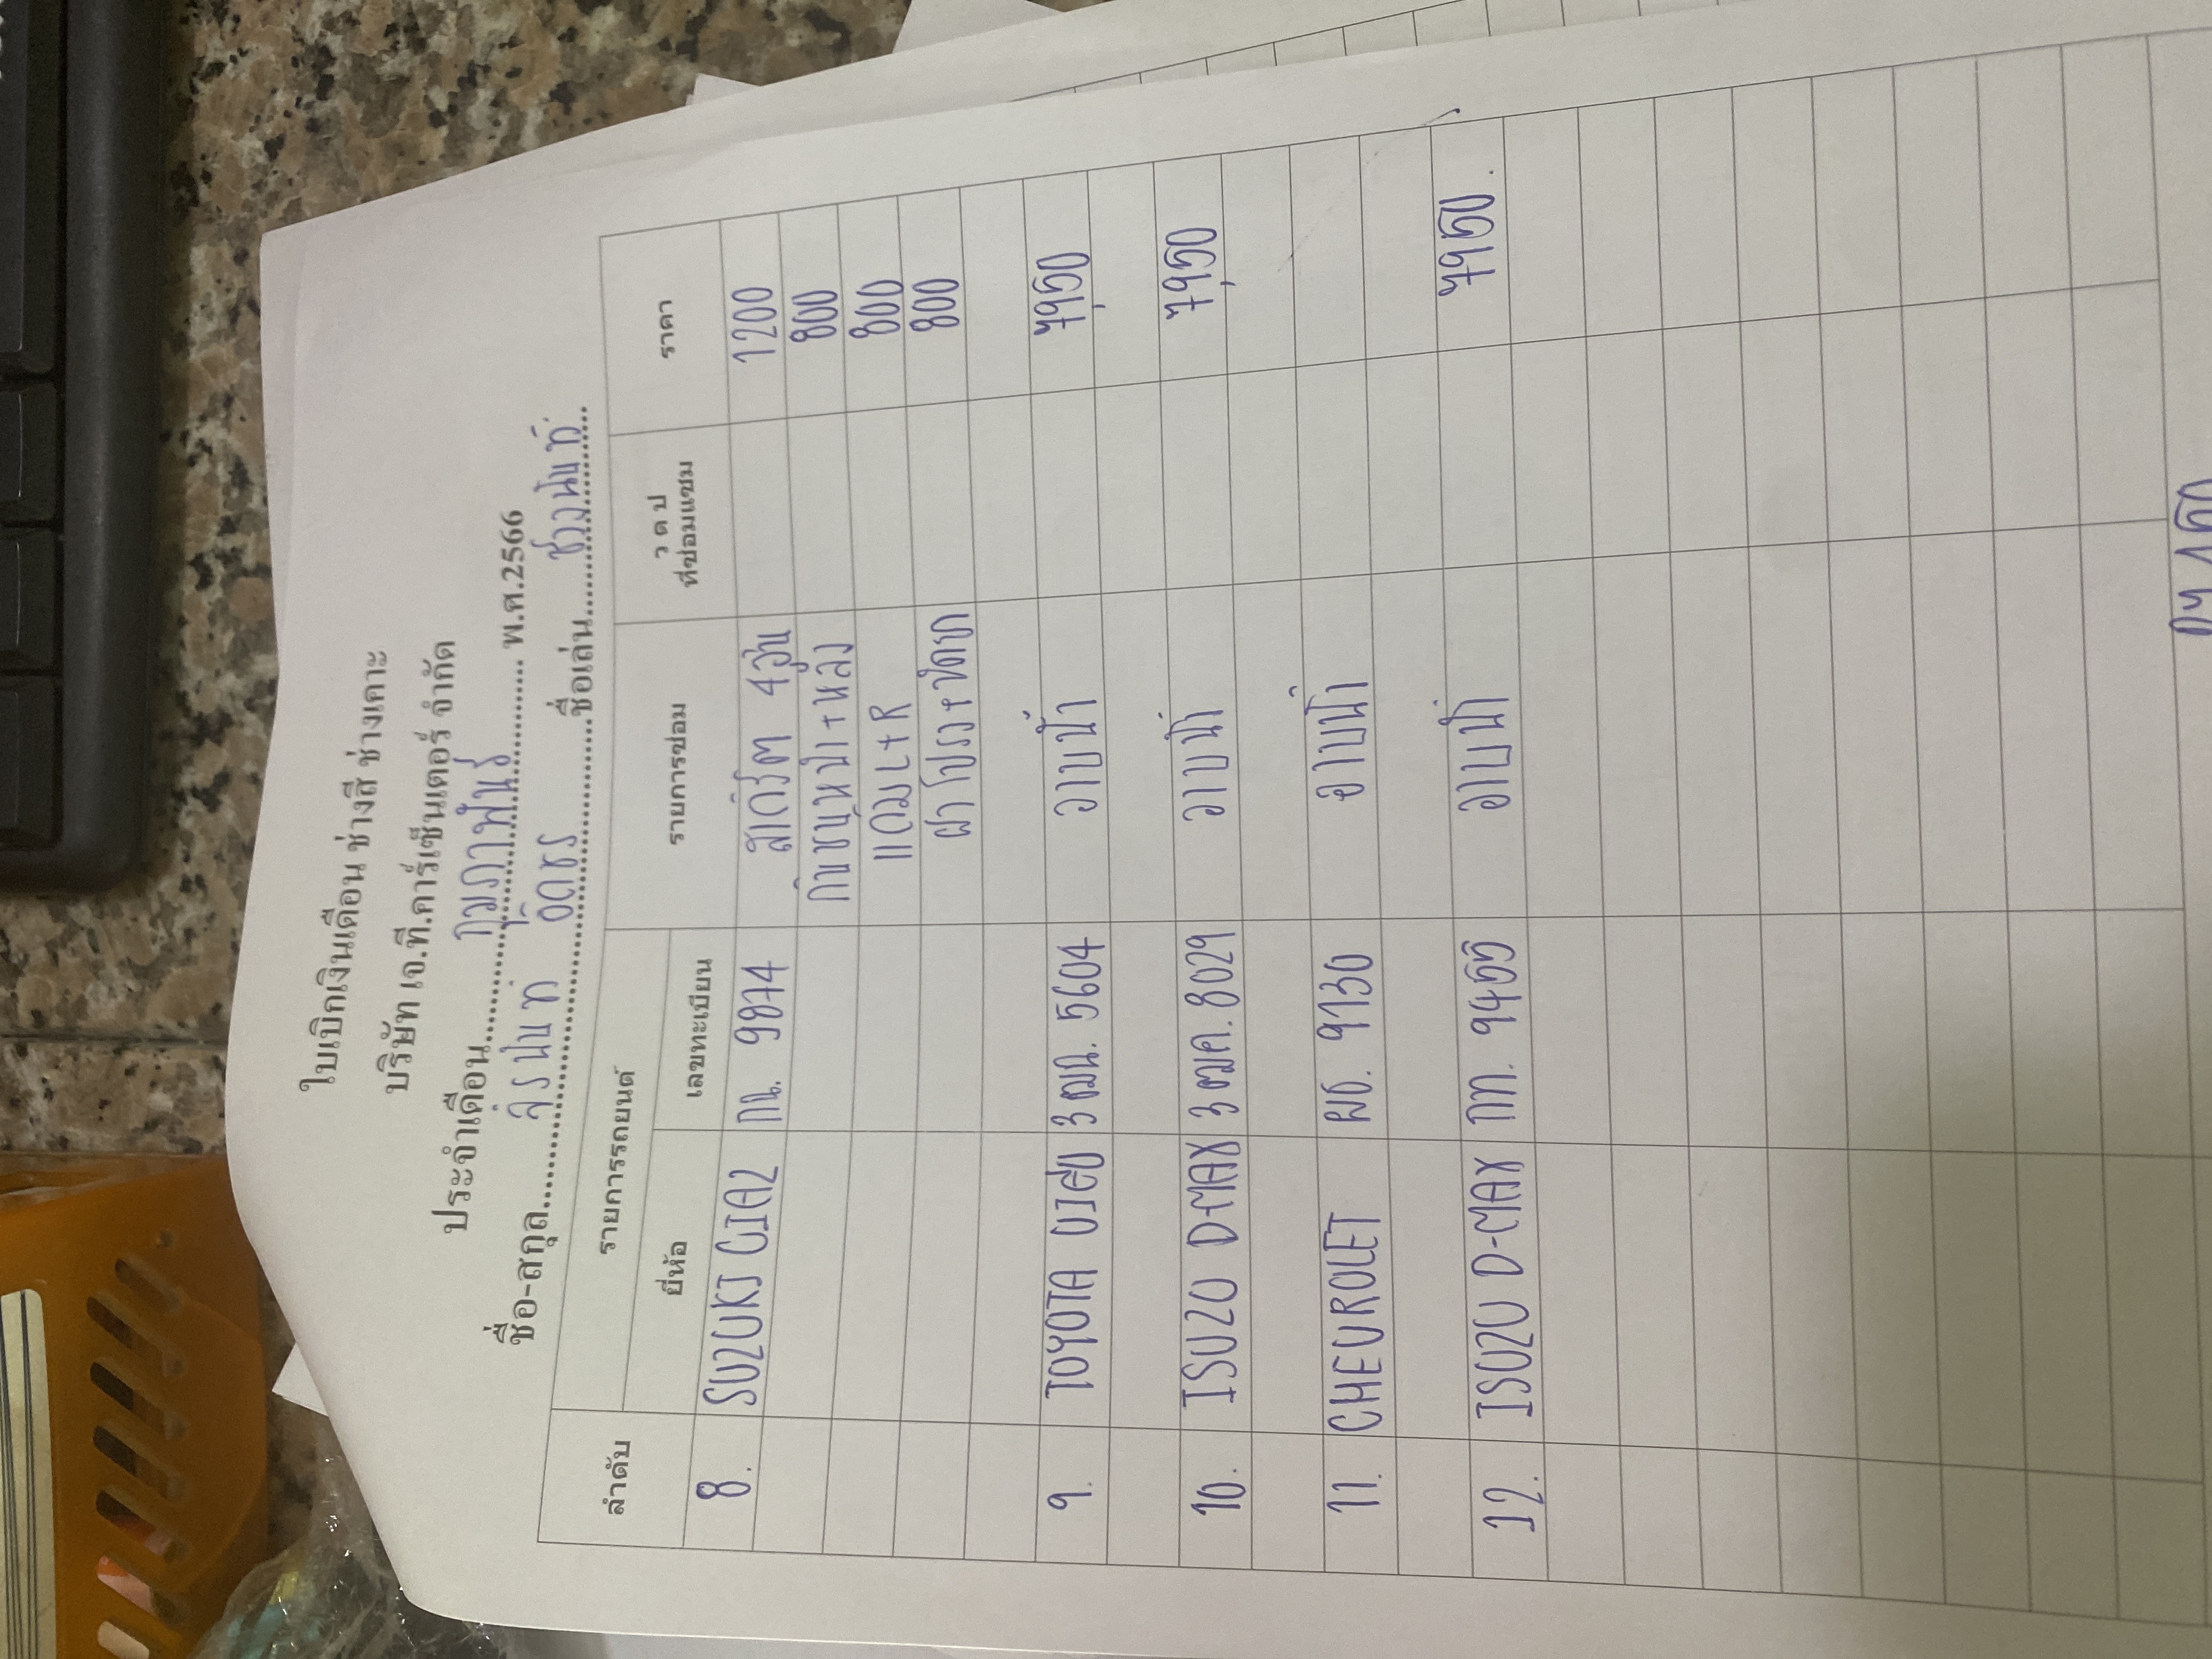 ใบเบิกเงินเดือน ช่างสี ช่างเคาะ
บริษัท เจ.ที.คาร์เซ็นเตอร์ จำกัด
ประจำเดือน......กุมภาพันธ์...... พ.ศ.2566
ชื่อ-สกุล......จิรนันท์......ชื่อเล่น......ช่างนันท์......
ลำดับ รายการรถยนต์ รายการซ่อม ว ด ป ที่ซ่อมแซม ราคา
ยี่ห้อ เลขทะเบียน
8. SUZUKI CIAZ กน. 9874 สเกิร์ต 4ชิ้น 1200
กันชนหน้า+หลัง 800
แก้ม L+R 800
ฝาโปรง+ 800
9. TOYOTA VIOS 3 ฒฉ. 5604 อาบน้ำ 7950
10. ISUZU D-MAX 3 ฒค. 8029 อาบน้ำ 7950
11. CHEVROLET ผธ. 9130 อาบน้ำ
12. ISUZU D-MAX กท. 9455 อาบน้ำ 7950.